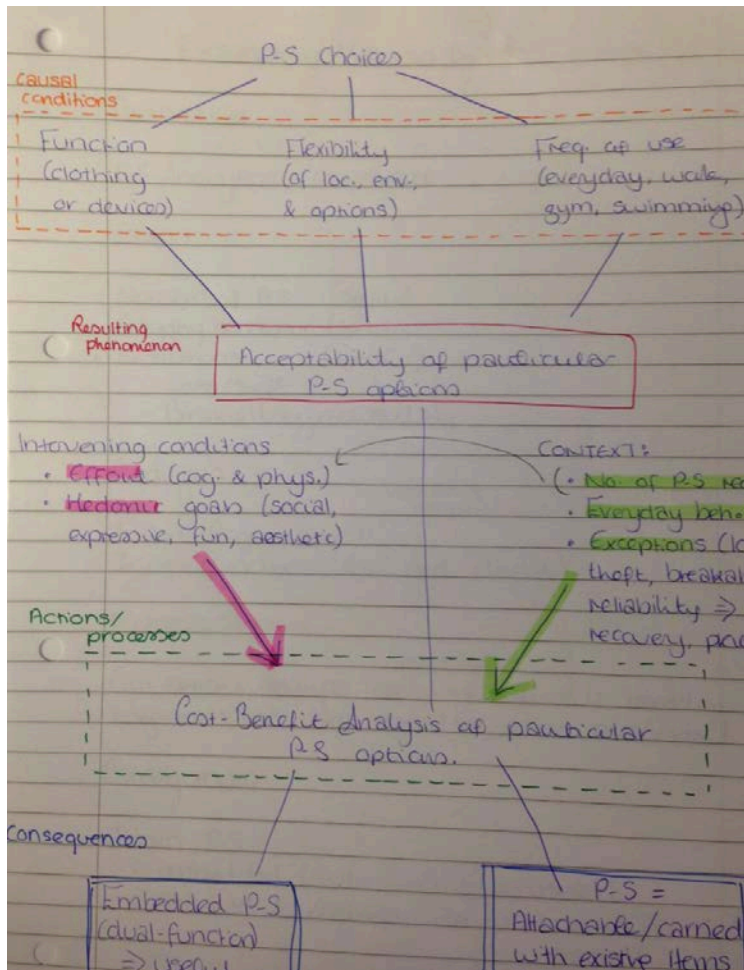 P-S Choices
Causal
conditions
Function
(clothing
or devices)
Flexibility
(of loc., env.,
& options)
Freq. of use
(everyday, walk,
gym, swimming)
Resulting
phenomenon
Acceptability of particular
P-S options
Intervening conditions
• Effort (cog. & phys.)
• Hedonic goals (social,
expressive, fun, aesthetic)
CONTEXT:
(• No. of P-S
• Everyday
• Exceptions
theft,
reliability ⇒
recovery,
Actions/
processes
Cost-Benefit Analysis of particular
P-S options.
Consequences
Embedded P-S
(dual-function)
P-S =
Attachable/carried
with existing items